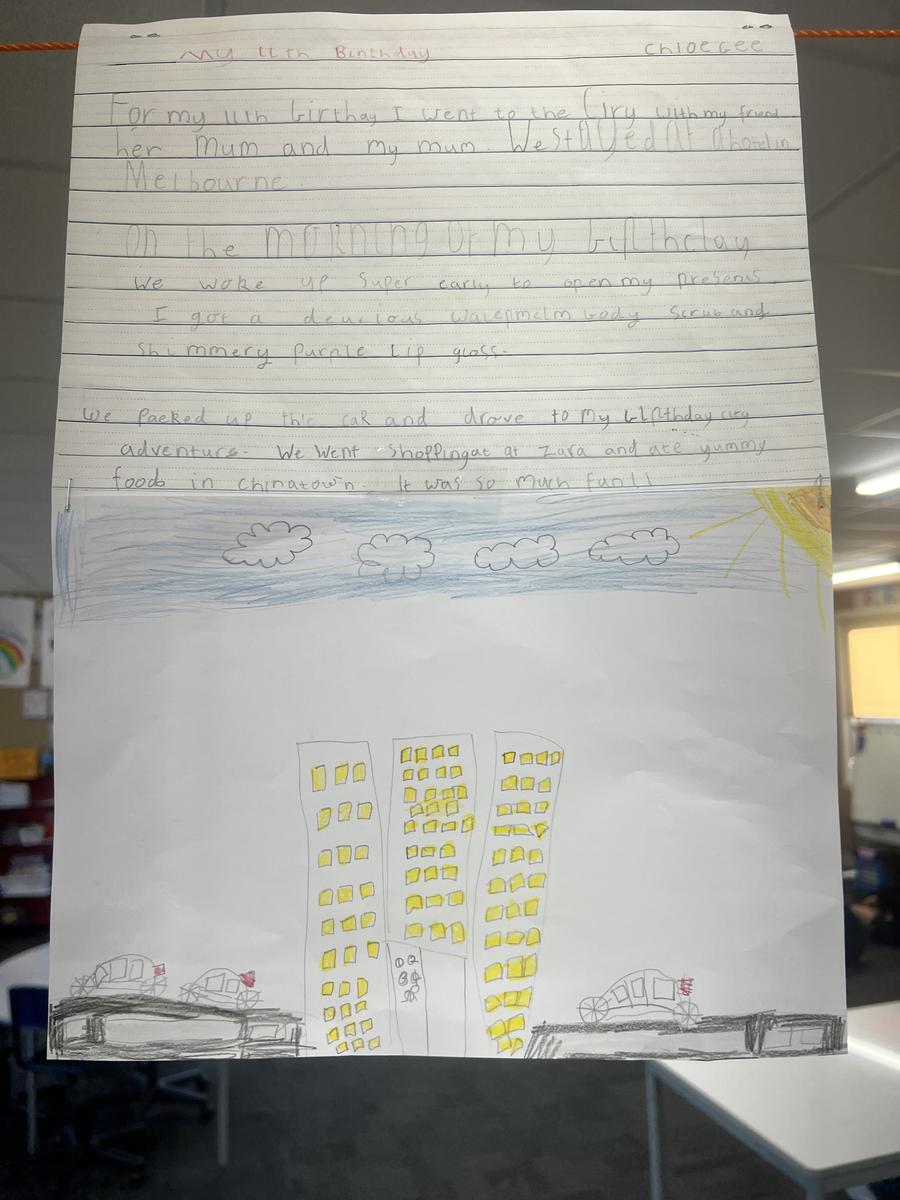 My 11th Birthday
Chloe Gee
For my 11th birthay I went to the Ciry with my friend
her Mum and my mum. We stayed at a hotel in
Melbourne.
On the morning of my birthday
we woke up super early to open my presents.
I got a delicious watepmelm body scrub and
shimmery purple lip gloss.
We packed up this car and drove to my birthday city
adventure. We went shopping at at Zara and ate yummy
foods in chinatown. It was so much fun!!